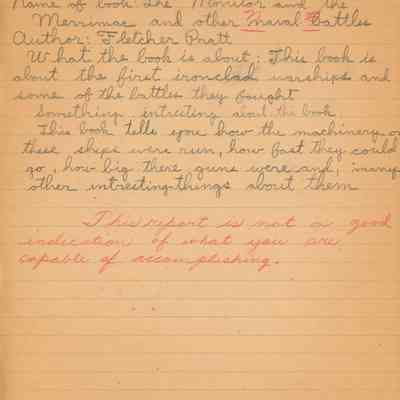 Name of book: The Monitor and the
Merrimac and other naval battles
Author: Fletcher Pratt
What the book is about: This book is
about the first ironclad warships and
some of the battles they fought
Something intresting about the book
This book tells you how the machinery on
these ships were run, how fast they could
go, how big there guns were and, many
other intresting things about them
This report is not a good
indication of what you are
capable of accomplishing.